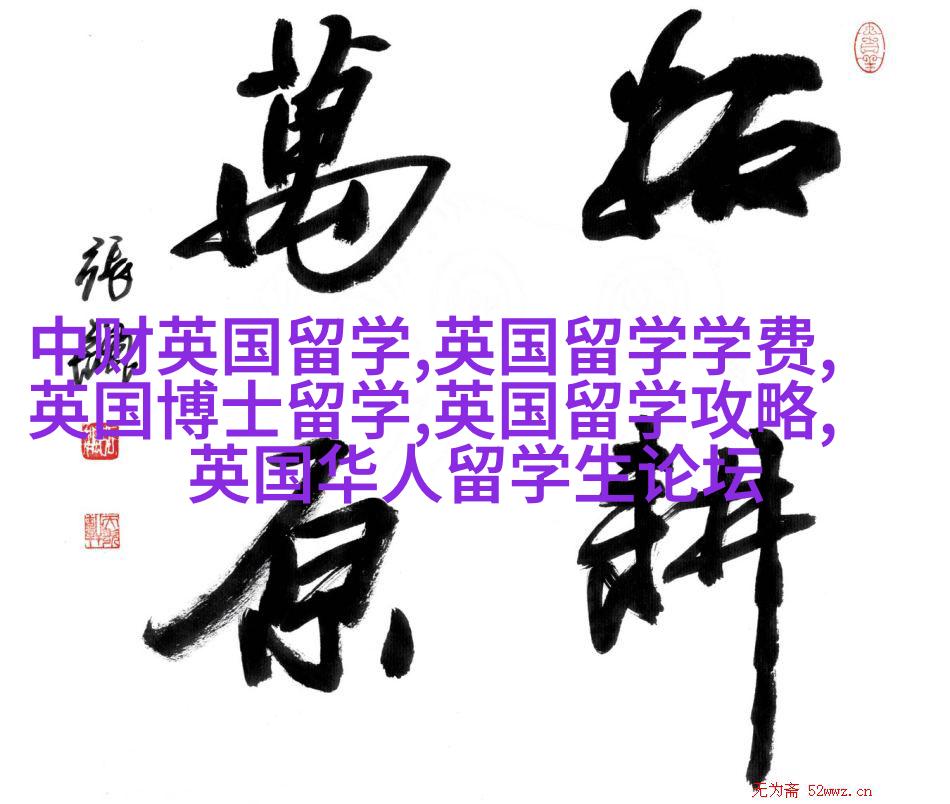 拓耕
萬原
張
中财英国留学,英国留学学费,
英国博士留学,英国留学攻略,
英国华人留学生论坛
无为斋 52wwz.cn